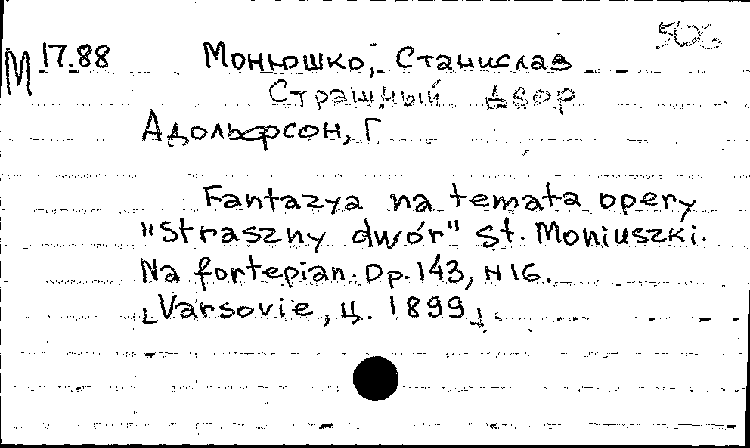 506
М 17.88 Монюшко, Станислав
Страшный двор
Адольфсон, Г
Fantazya na temata opery
"Straszny dwór" St. Moniuszki.
Na fortepian. Op. 143, N 16.
[Varsovie, ц. 1899]